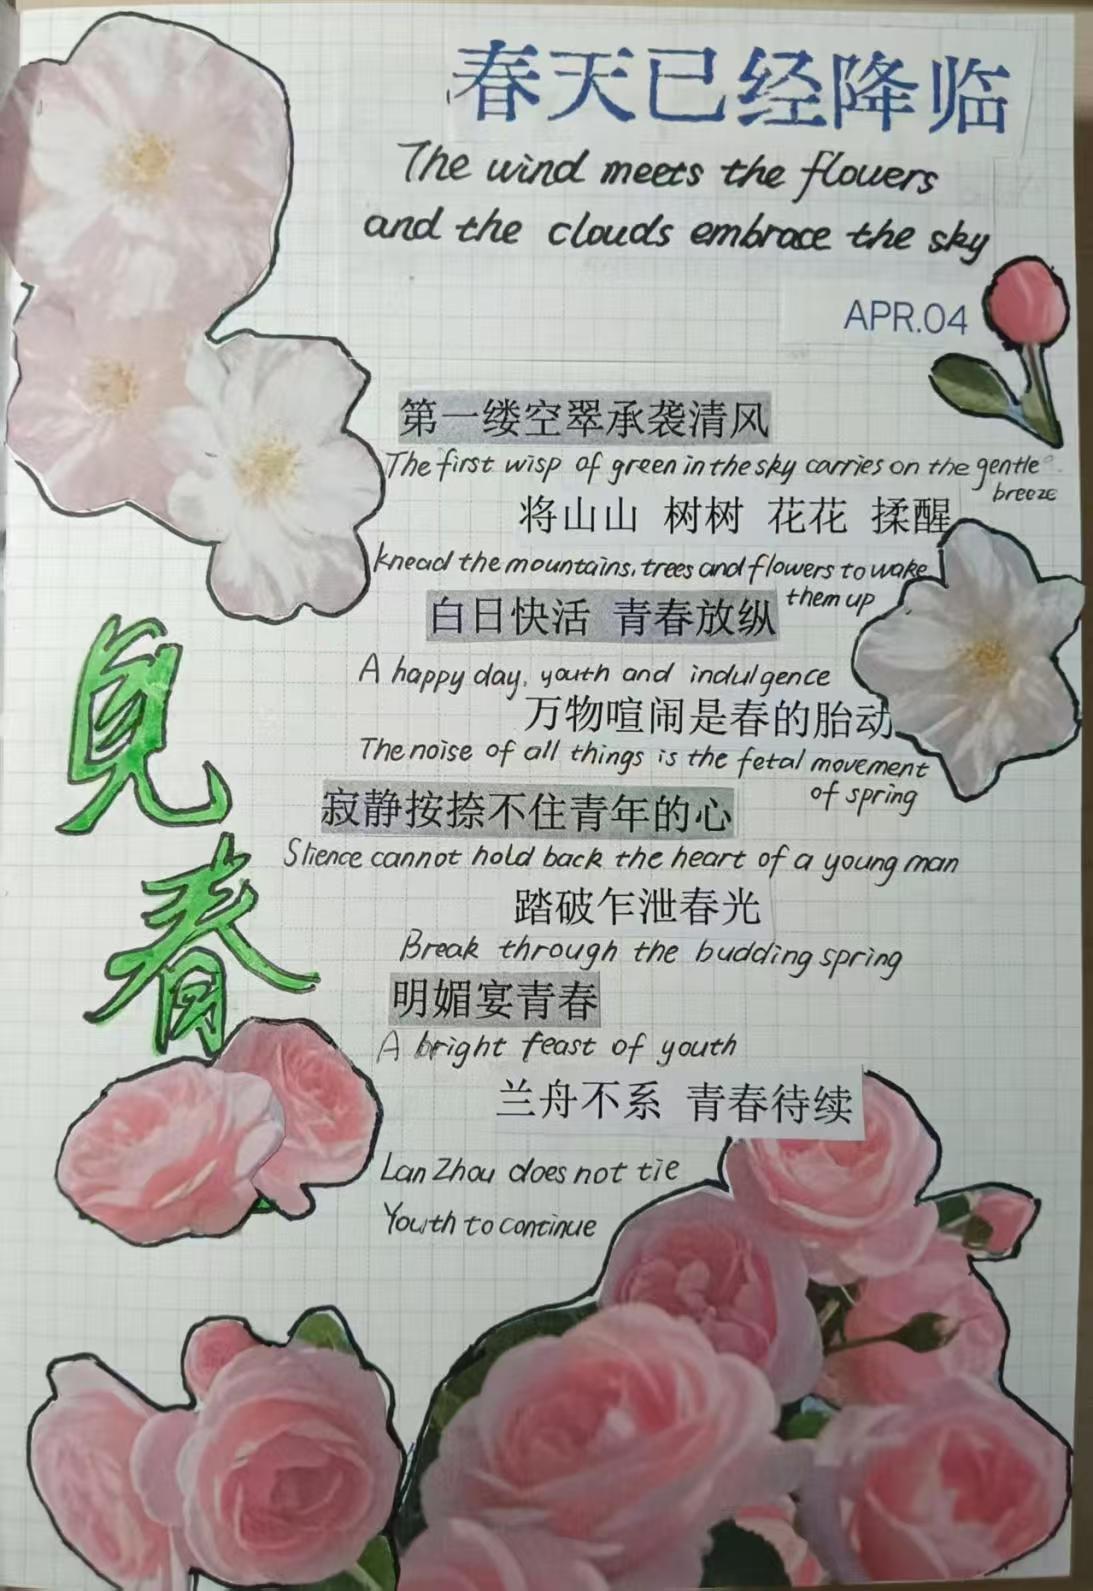 春天已经降临
The wind meets the flowers
and the clouds embrace the sky
APR.04
第一缕空翠承袭清风
The first wisp of green in the sky carries on the gentle
breeze
将山山 树树 花花 揉醒
knead the mountains, trees and flowers to wake
them up
白日快活 青春放纵
A happy day, youth and indulgence
万物喧闹是春的胎动
The noise of all things is the fetal movement
of spring
寂静按捺不住青年的心
Slience cannot hold back the heart of a young man
踏破乍泄春光
Break through the budding spring
明媚宴青春
A bright feast of youth
兰舟不系 青春待续
Lan Zhou does not tie
Youth to continue
見春